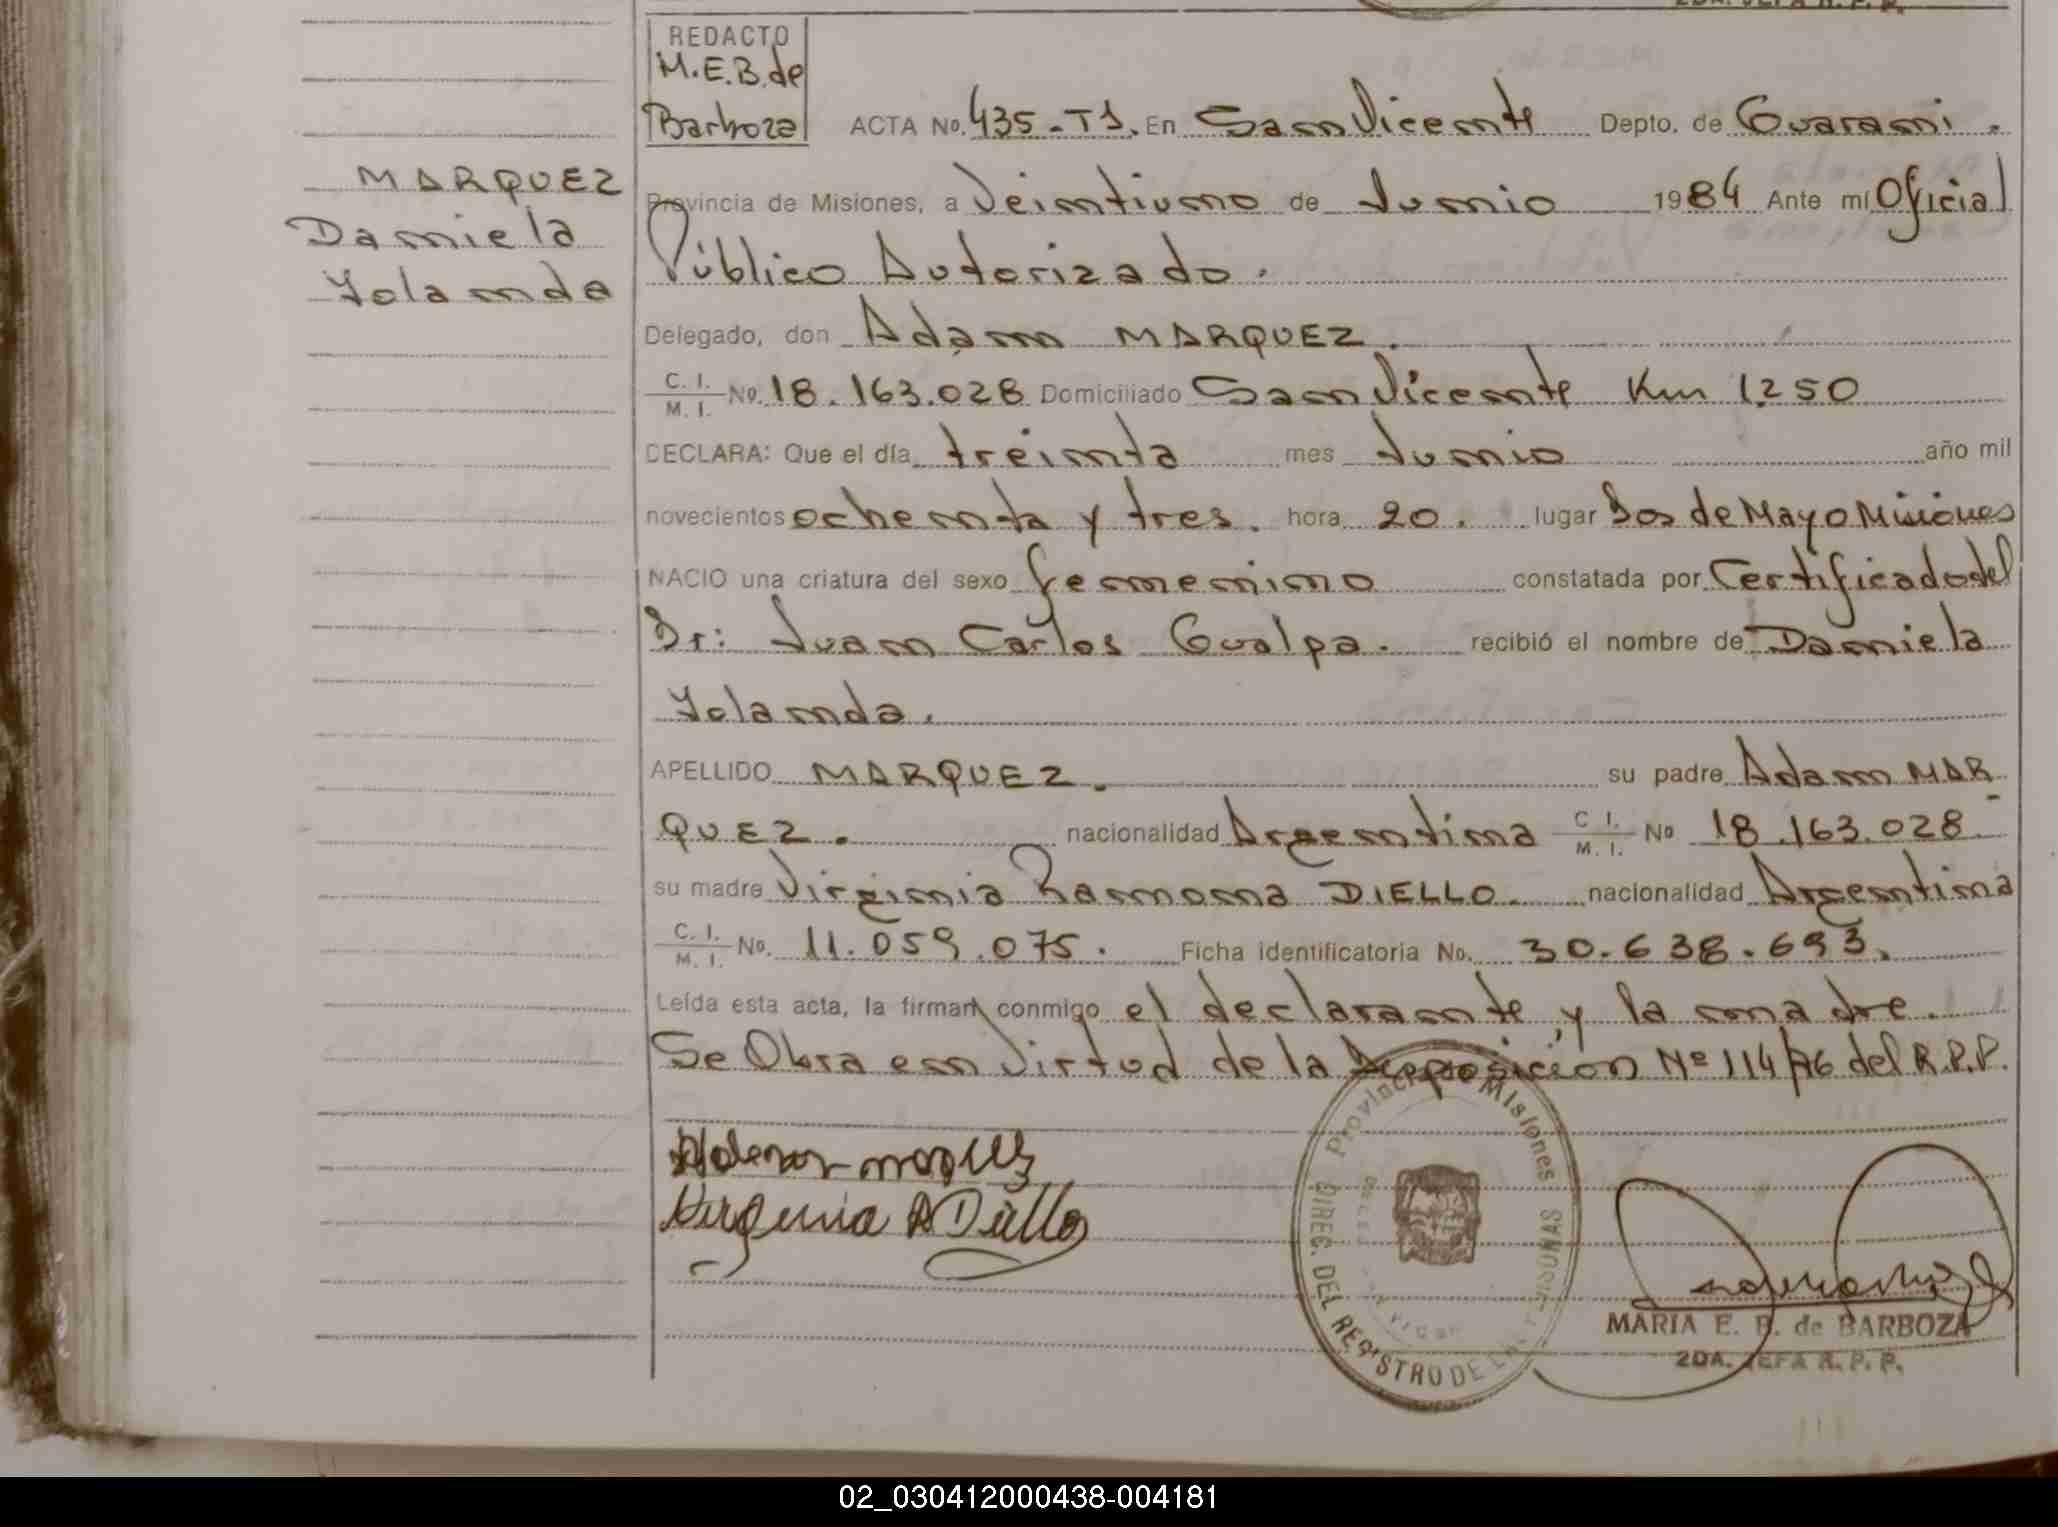 2DA. JEFA R. P. P.
REDACTO
M.E.B. de
Barboza
ACTA No. 435-T1. En San Vicente Depto. de Guarani.
MARQUEZ
Daniela
Yolanda
Provincia de Misiones, a Veintiuno de Junio 1984 Ante mí Oficial
Público Autorizado.
Delegado, don Adam MARQUEZ.
C. I.
M. I. No. 18.163.028 Domiciliado San Vicente Km 1250
DECLARA: Que el día treinta mes Junio año mil
novecientos ochenta y tres. hora 20. lugar Dos de Mayo Misiones
NACIO una criatura del sexo femenino constatada por Certificado del
Dr: Juan Carlos Gualpa. recibió el nombre de Daniela
Yolanda.
APELLIDO MARQUEZ. su padre Adam MAR-
QUEZ. nacionalidad Argentina C. I.
M. I. No 18.163.028
su madre Virginia Ramona DIELLO. nacionalidad Argentina
C. I.
M. I. No. 11.059.075. Ficha identificatoria No. 30.638.693.
Leída esta acta, la firman conmigo el declarante y la madre.
Se Obra en Virtud de la Disposición Nº 114/76 del R.P.P.
Virginia R Diello
Provincia de Misiones
DIREC. DEL REGISTRO DE LAS PERSONAS
MARIA E. B. de BARBOZA
2DA. JEFA R. P. P.
02_030412000438-004181